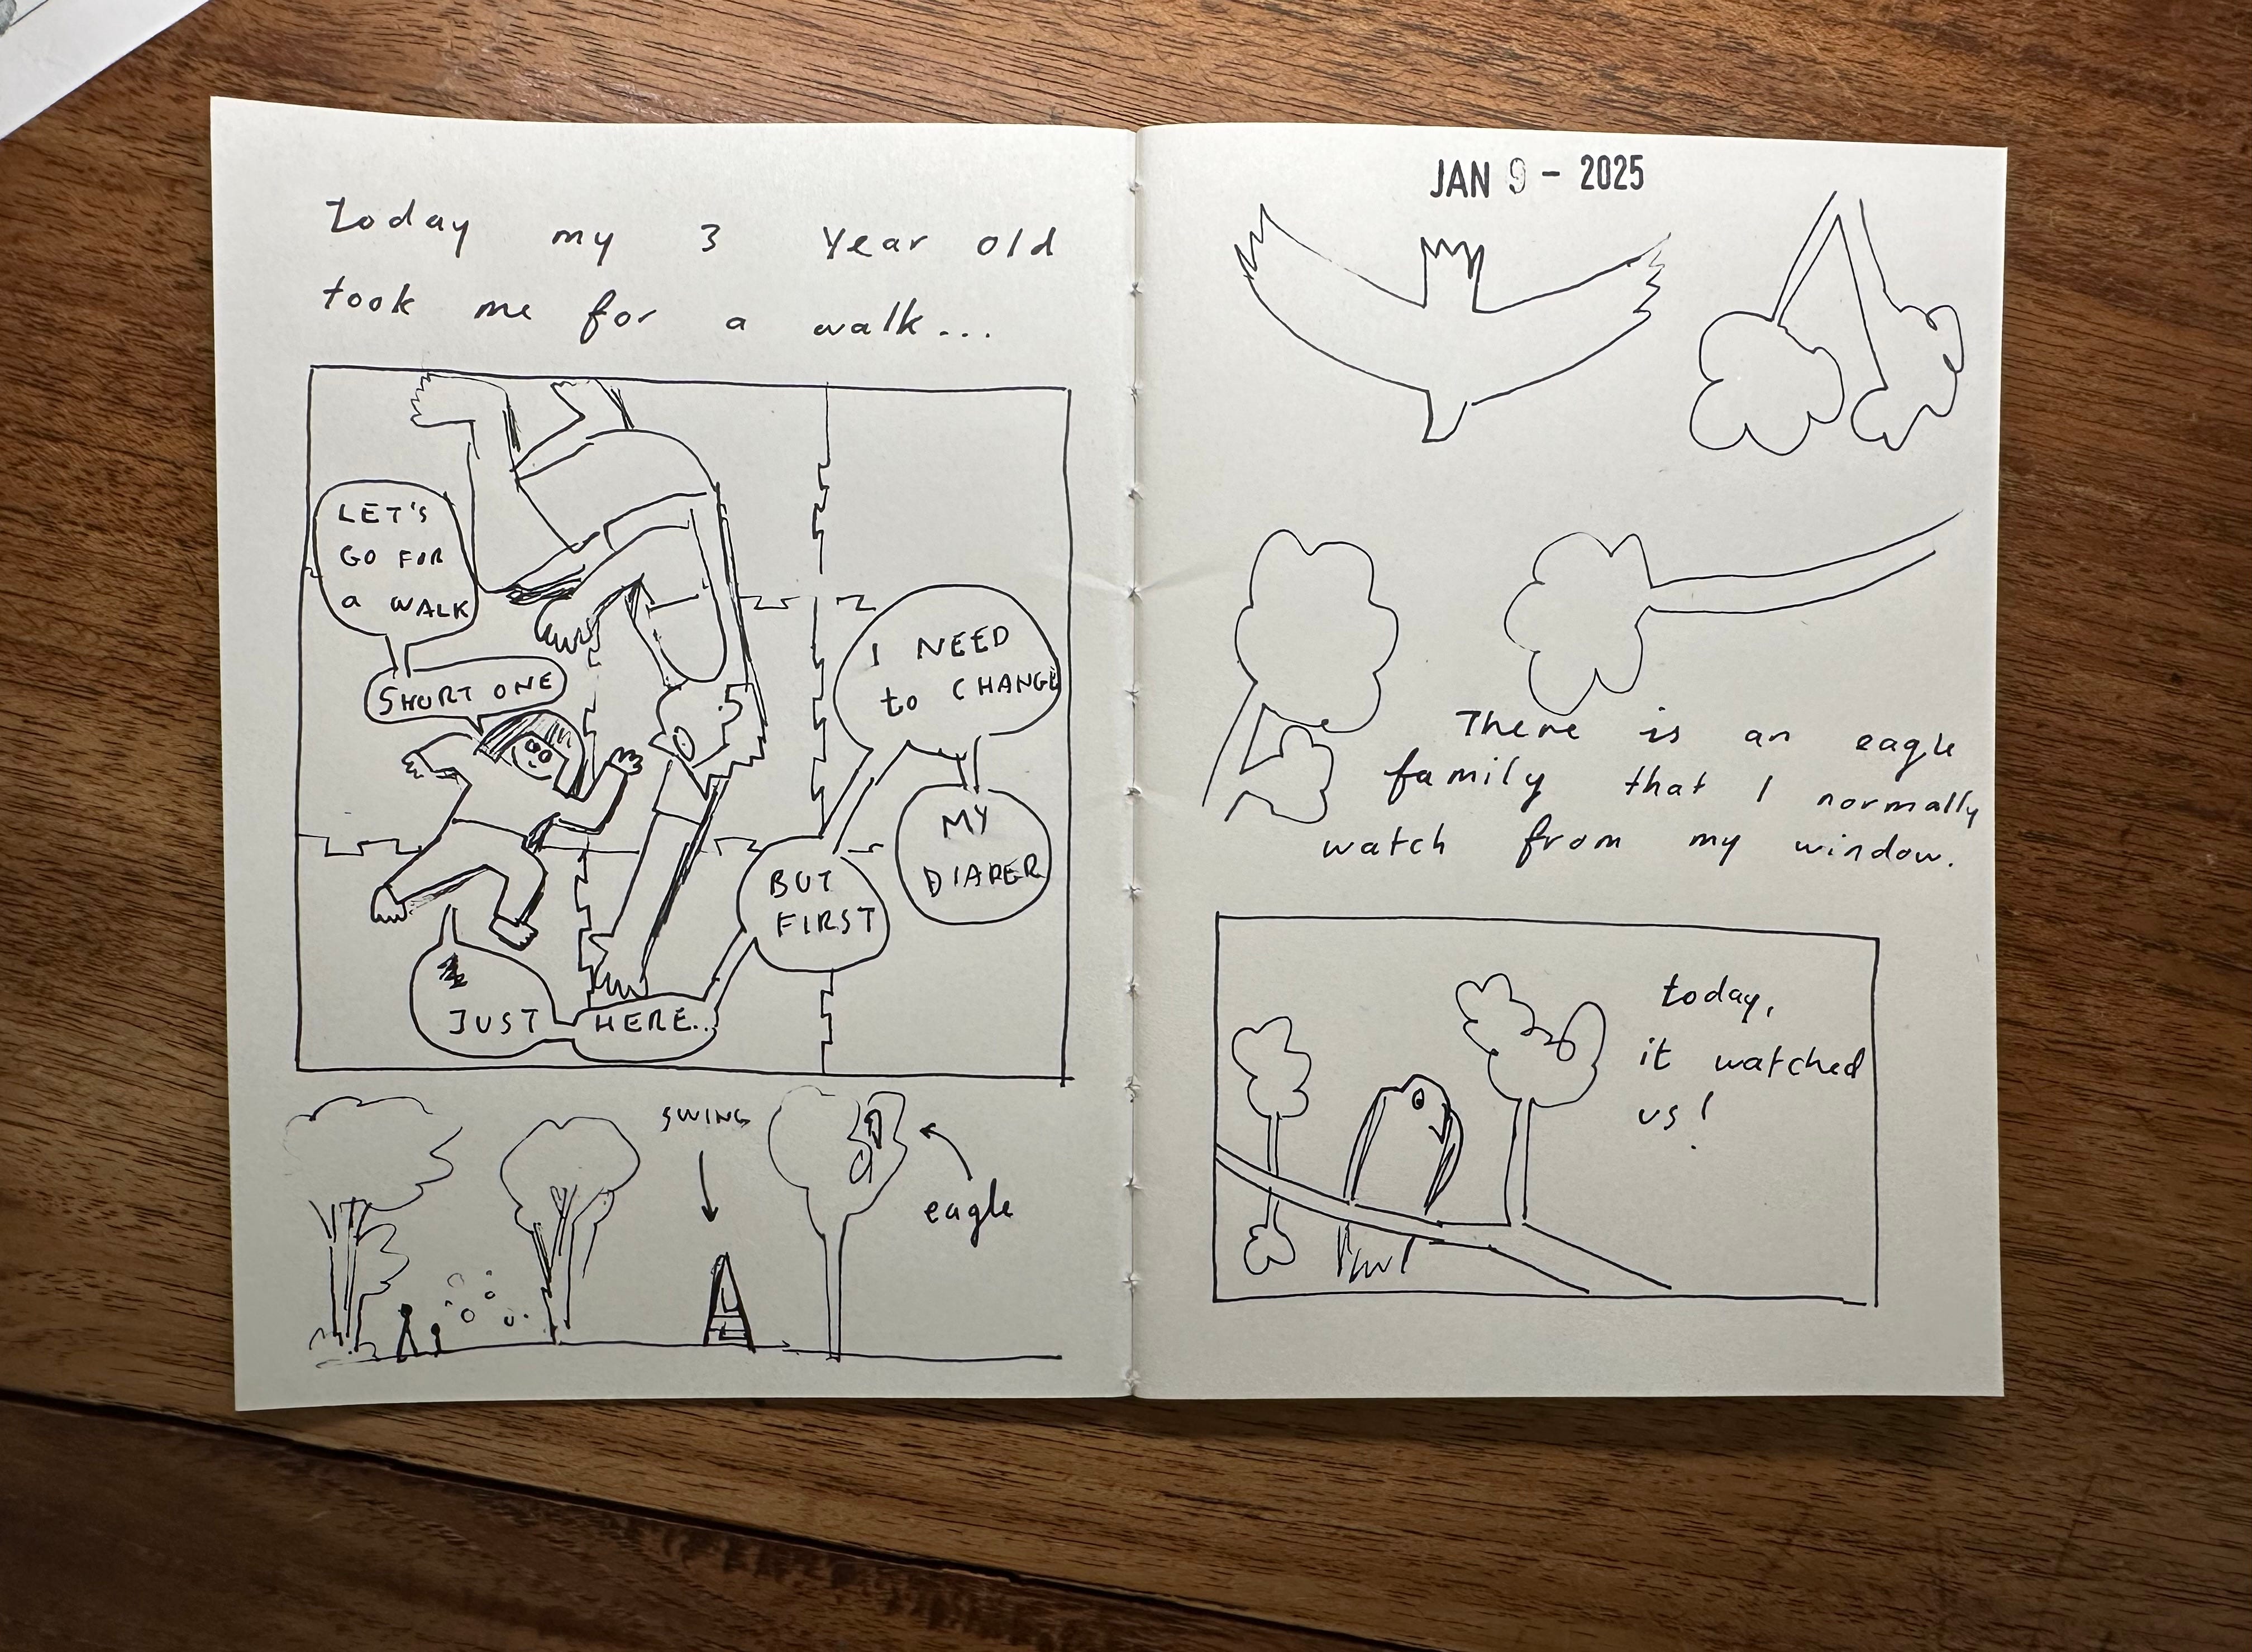 today my 3 year old
took me for a walk...
LET'S
GO FOR
a WALK
SHORT ONE
JUST HERE..
BUT
FIRST
I NEED
to CHANGE
MY
DIAPER
SWING
eagle
JAN 9 - 2025
There is an eagle
family that I normally
watch from my window.
today,
it watched
us!